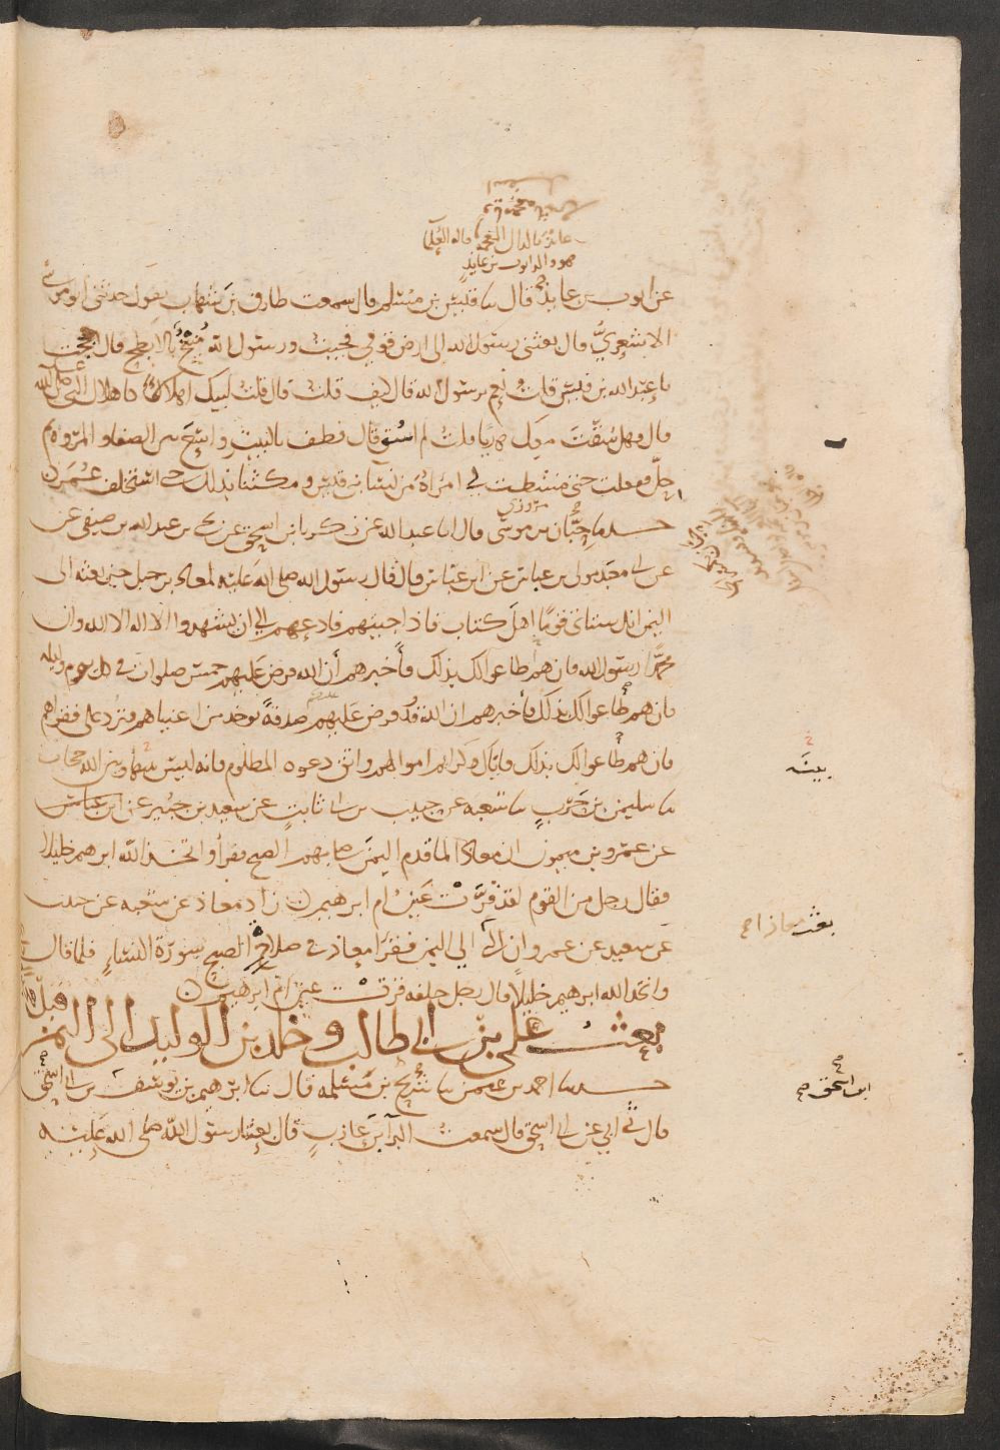 عايذ بالذال المعجمة قاله العلما
هو والد ايوب بن عايذ
عن ايوب بن عايذ قال نا قيس بن مسلم قال سمعت طارق بن شهاب يقول حدثني ابو موسى
الاشعري قال بعثني رسول الله الى ارض قومي فجيت ورسول الله منيخ بالابطح فقال احججت
يا عبد الله بن قيس قلت نعم يرسول الله قال كيف قلت قال قلت لبيك اهلالا كاهلال النبي صلى الله
قال وهل سقت معك هديا قلت لم اسق قال فطف بالبيت واسع بين الصفا والمروة ثم
حل ففعلت حتى مشطت لي امراة من نسا بني قيس ومكثنا بذلك حتى استخلف عمر
حدثنا حبان بن موسى قال انا عبد الله عن زكريا بن اسحق عن يحيى بن عبد الله بن صيفي عن
عن ابي معبد مولى بن عباس عن ابن عباس قال قال رسول الله صلى الله عليه لمعاذ بن جبل حين بعثه الى
اليمن انك ستاتي قوما اهل كتاب فاذا جيتهم فادعهم الى ان يشهدوا الا اله الا الله وان
محمدا رسول الله فان هم طاعوا لك بذلك فأخبرهم أن الله فرض عليهم خمس صلوات في كل يوم وليلة
فان هم طاعوا لك بذلك فأخبرهم ان الله قد فرض عليهم صدقة توخذ من اغنياهم فترد على فقراهم
فان هم طاعوا لك بذلك فاياك وكرايم اموالهم واتق دعوه المظلوم فانه ليس بينها وبين الله حجاب
بينه
نا سليمن بن حرب نا شعبه عن حبيب بن ابي ثابت عن سعيد بن جبير عن ابن عباس
عن عمرو بن ميمون ان معاذا لما قدم اليمن صلى بهم الصبح فقرأ واتخذ الله ابرهيم خليلا
فقال رجل من القوم لقد قرت عين ام ابرهيم زاد معاذ عن شعبه عن حبيب
بعث معاذا
عن سعيد عن عمرو ان الى اليمن فقرا معاذ في صلاة الصبح سورة النساء فلما قال
واتخذ الله ابرهيم خليلا قال رجل خلفه قرت عين ام ابرهيم
بعث علي بن ابي طالب وخلد بن الوليد الى اليمن قبل
حدثنا احمد بن عثمن نا شريح بن مسلمه قال نا ابرهيم بن يوسف بن ابي اسحق
ابن اسحق صح
قال ني ابي عن ابي اسحق قال سمعت البرآ بن عازب قال بعثنا رسول الله صلى الله عليه